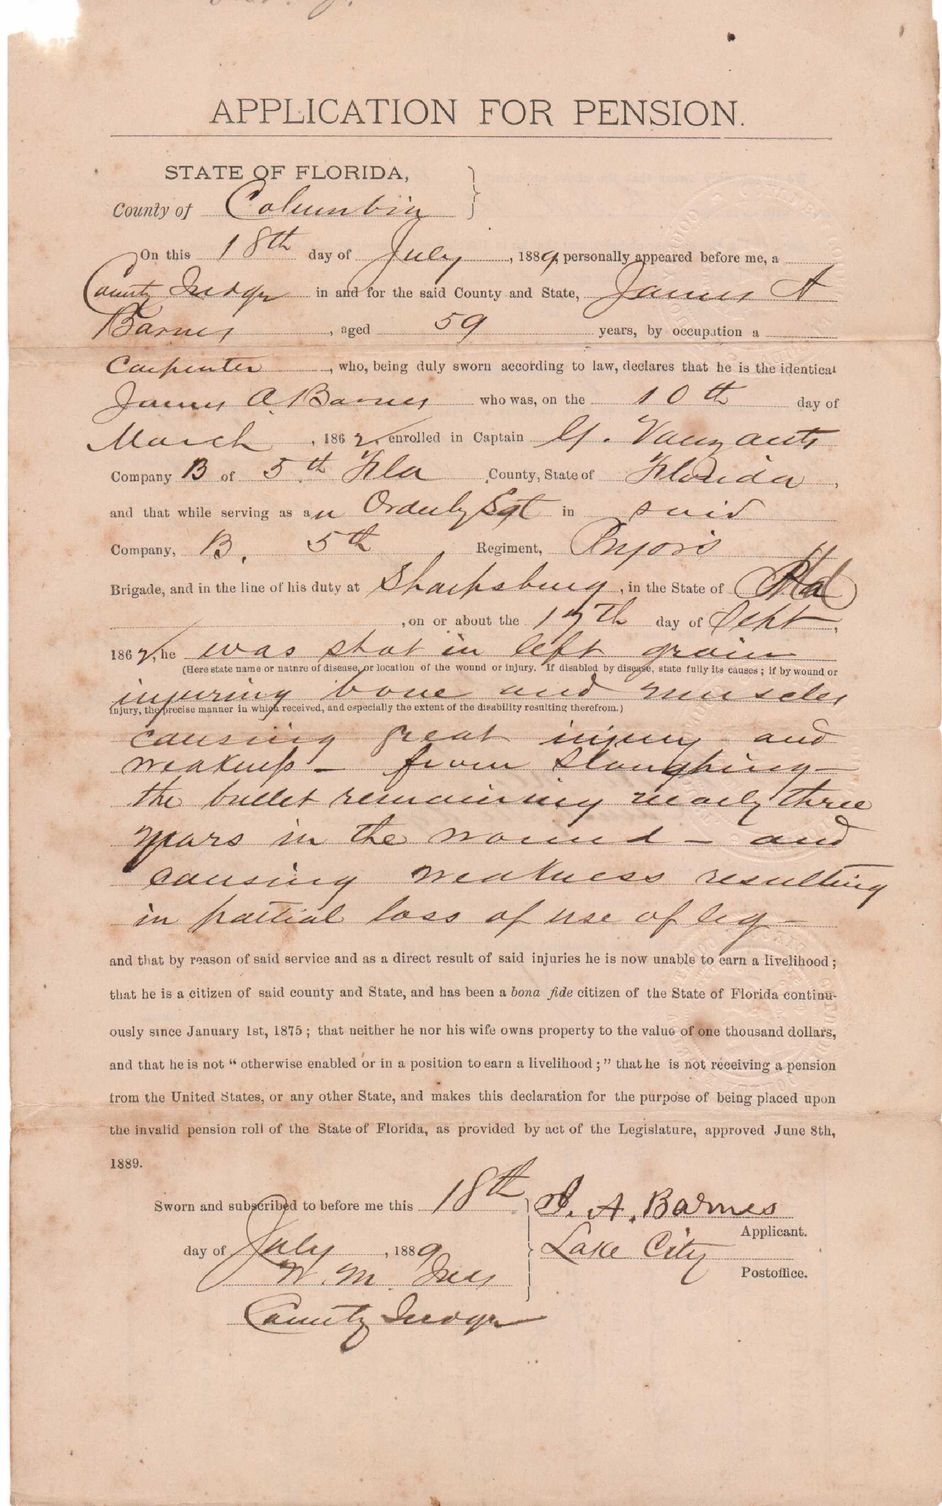 APPLICATION FOR PENSION.
STATE OF FLORIDA,
County of Columbia
On this 18th day of July, 1889, personally appeared before me, a
County Judge in and for the said County and State, James A
Barnes, aged 59 years, by occupation a
Carpenter, who, being duly sworn according to law, declares that he is the identical
James A. Barnes who was, on the 10th day of
March, 1862, enrolled in Captain Vanzants
Company B of 5th Fla County, State of Florida,
and that while serving as an Orderly Sgt in said
Company, B. 5th Regiment, Pryors
Brigade, and in the line of his duty at Sharpsburg, in the State of
, on or about the 17th day of Sept,
1862, he was shot in left groin
(Here state name or nature of disease, or location of the wound or injury. If disabled by disease, state fully its causes; if by wound or
injuring bone and muscles
injury, the precise manner in which received, and especially the extent of the disability resulting therefrom.)
causing great injury and
weakness - from Sloughing -
the bullet remaining nearly three
years in the wound - and
causing weakness resulting
in partial loss of use of leg -
and that by reason of said service and as a direct result of said injuries he is now unable to earn a livelihood;
that he is a citizen of said county and State, and has been a bona fide citizen of the State of Florida continu-
ously since January 1st, 1875; that neither he nor his wife owns property to the value of one thousand dollars,
and that he is not "otherwise enabled or in a position to earn a livelihood;" that he is not receiving a pension
from the United States, or any other State, and makes this declaration for the purpose of being placed upon
the invalid pension roll of the State of Florida, as provided by act of the Legislature, approved June 8th,
1889.
Sworn and subscribed to before me this 18th
day of July, 1889
W. M. Ives
County Judge
J. A. Barnes
Applicant.
Lake City
Postoffice.